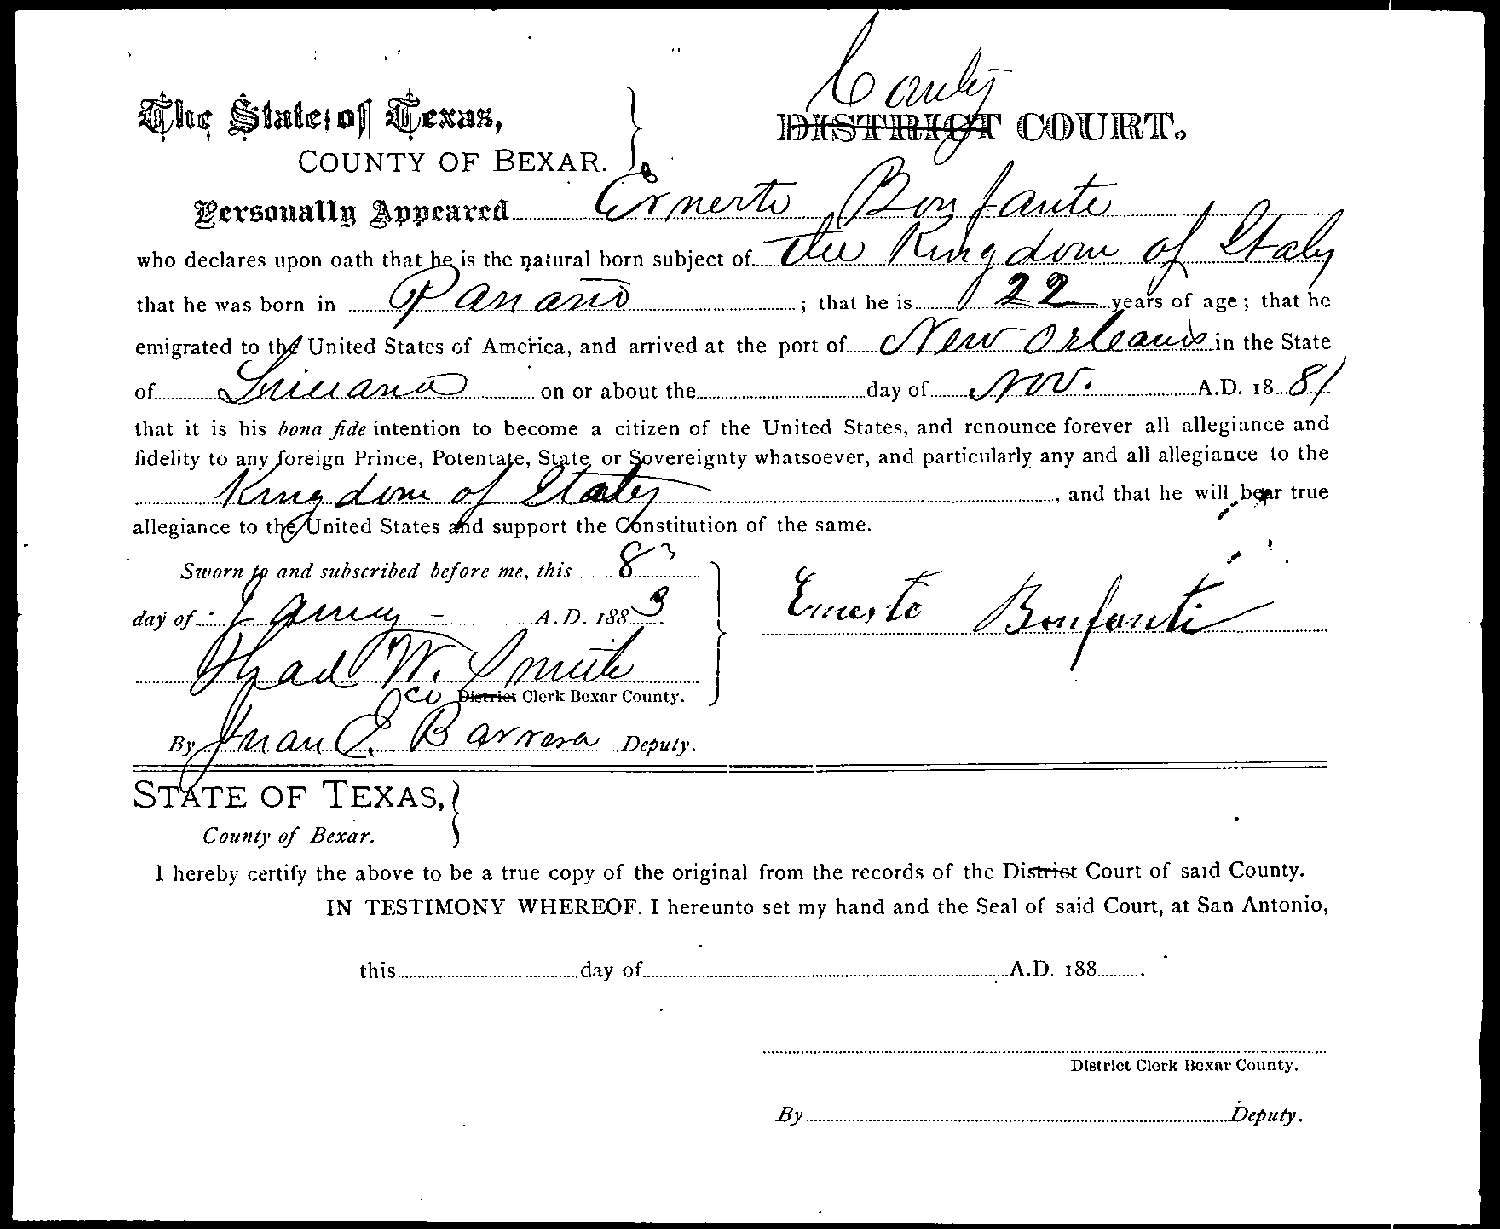 County
The State of Texas, DISTRICT COURT.
COUNTY OF BEXAR.
Personally Appeared Ernerto Bonfante
who declares upon oath that he is the natural born subject of the Kingdom of Italy
that he was born in Panano ; that he is 22 years of age; that he
emigrated to the United States of America, and arrived at the port of New Orleans in the State
of on or about the day of Nov. A.D. 1881
that it is his bona fide intention to become a citizen of the United States, and renounce forever all allegiance and
fidelity to any foreign Prince, Potentate, State or Sovereignty whatsoever, and particularly any and all allegiance to the
Kingdom of Italy , and that he will bear true
allegiance to the United States and support the Constitution of the same.
Sworn to and subscribed before me, this 8
day of A.D. 1883 Ernesto Bonfanti
Thad W. Smith
Co District Clerk Bexar County.
By Juan E. Barrera Deputy.
STATE OF TEXAS,
County of Bexar.
I hereby certify the above to be a true copy of the original from the records of the District Court of said County.
IN TESTIMONY WHEREOF. I hereunto set my hand and the Seal of said Court, at San Antonio,
this day of A.D. 188 .
District Clerk Bexar County.
By Deputy.